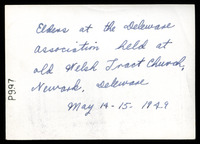 Elders at the Delaware
association held at
old Welsh Tract Church,
Newark, Delaware
May 14-15- 1849
P997